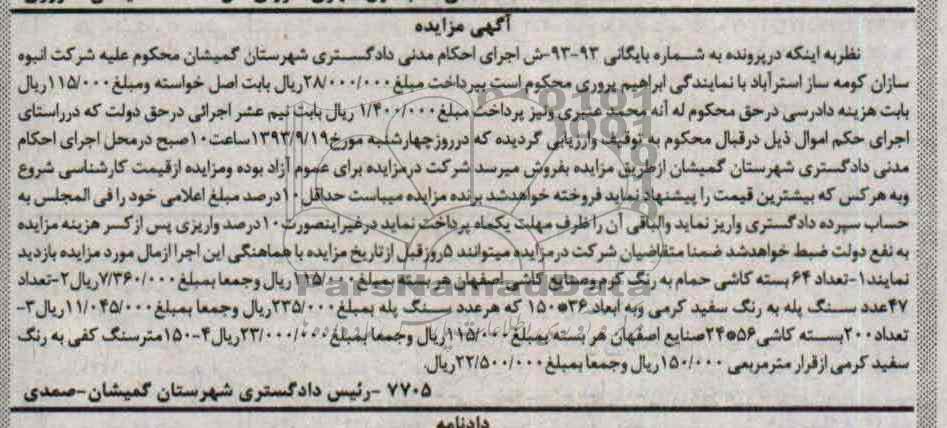 آگهی مزایده
نظربه اینکه درپرونده به شماره بایگانی ۹۳-۹۳-ش اجرای احکام مدنی دادگستری شهرستان گمیشان محکوم علیه شرکت انبوه
سازان کومه ساز استرآباد با نمایندگی ابراهیم پروری محکوم است بپرداخت مبلغ ۲۸/۰۰۰/۰۰۰ریال بابت اصل خواسته ومبلغ ۱۱۵/۰۰۰ریال
بابت هزینه دادرسی درحق محکوم له آنه محمد عنبری ونیز پرداخت مبلغ ۱/۴۰۰/۰۰۰ ریال بابت نیم عشر اجرائی درحق دولت که درراستای
اجرای حکم اموال ذیل درقبال محکوم به توقیف وارزیابی گردیده که درروزچهارشنبه مورخ۱۳۹۳/۹/۱۹ساعت۱۰صبح درمحل اجرای احکام
مدنی دادگستری شهرستان گمیشان ازطریق مزایده بفروش میرسد شرکت درمزایده برای عموم آزاد بوده ومزایده ازقیمت کارشناسی شروع
وبه هرکس که بیشترین قیمت را پیشنهاد نماید فروخته خواهدشد برنده مزایده میبایست حداقل ۱۰درصد مبلغ اعلامی خود را فی المجلس به
حساب سپرده دادگستری واریز نماید والباقی آن را ظرف مهلت یکماه پرداخت نماید درغیراینصورت۱۰درصد واریزی پس ازکسر هزینه مزایده
به نفع دولت ضبط خواهدشد ضمنا متقاضیان شرکت درمزایده میتوانند ۵روزقبل ازتاریخ مزایده با هماهنگی این اجرا ازمال مورد مزایده بازدید
نمایند۱-تعداد ۶۴ بسته کاشی حمام به رنگ کرم وصنایع کاشی اصفهان هر بسته بمبلغ ۱۱۵/۰۰۰ریال وجمعا بمبلغ ۷/۳۶۰/۰۰۰ریال۲-تعداد
۴۷عدد سنگ پله به رنگ سفید کرمی وبه ابعاد ۳۶*۱۵۰ که هرعدد سنگ پله بمبلغ۲۳۵/۰۰۰ریال وجمعا بمبلغ۱۱/۰۴۵/۰۰۰ریال۳-
تعداد۲۰۰بسته کاشی۵۶*۲۴صنایع اصفهان هر بسته بمبلغ۱۱۵/۰۰۰ریال وجمعا بمبلغ۲۳/۰۰۰/۰۰۰ریال۴-۱۵۰مترسنگ کفی به رنگ
سفید کرمی ازقرار مترمربعی ۱۵۰/۰۰۰ریال وجمعا بمبلغ۲۲/۵۰۰/۰۰۰ریال.
۷۷۰۵ -رئیس دادگستری شهرستان گمیشان-صمدی
دادنامه
ParsNamadData